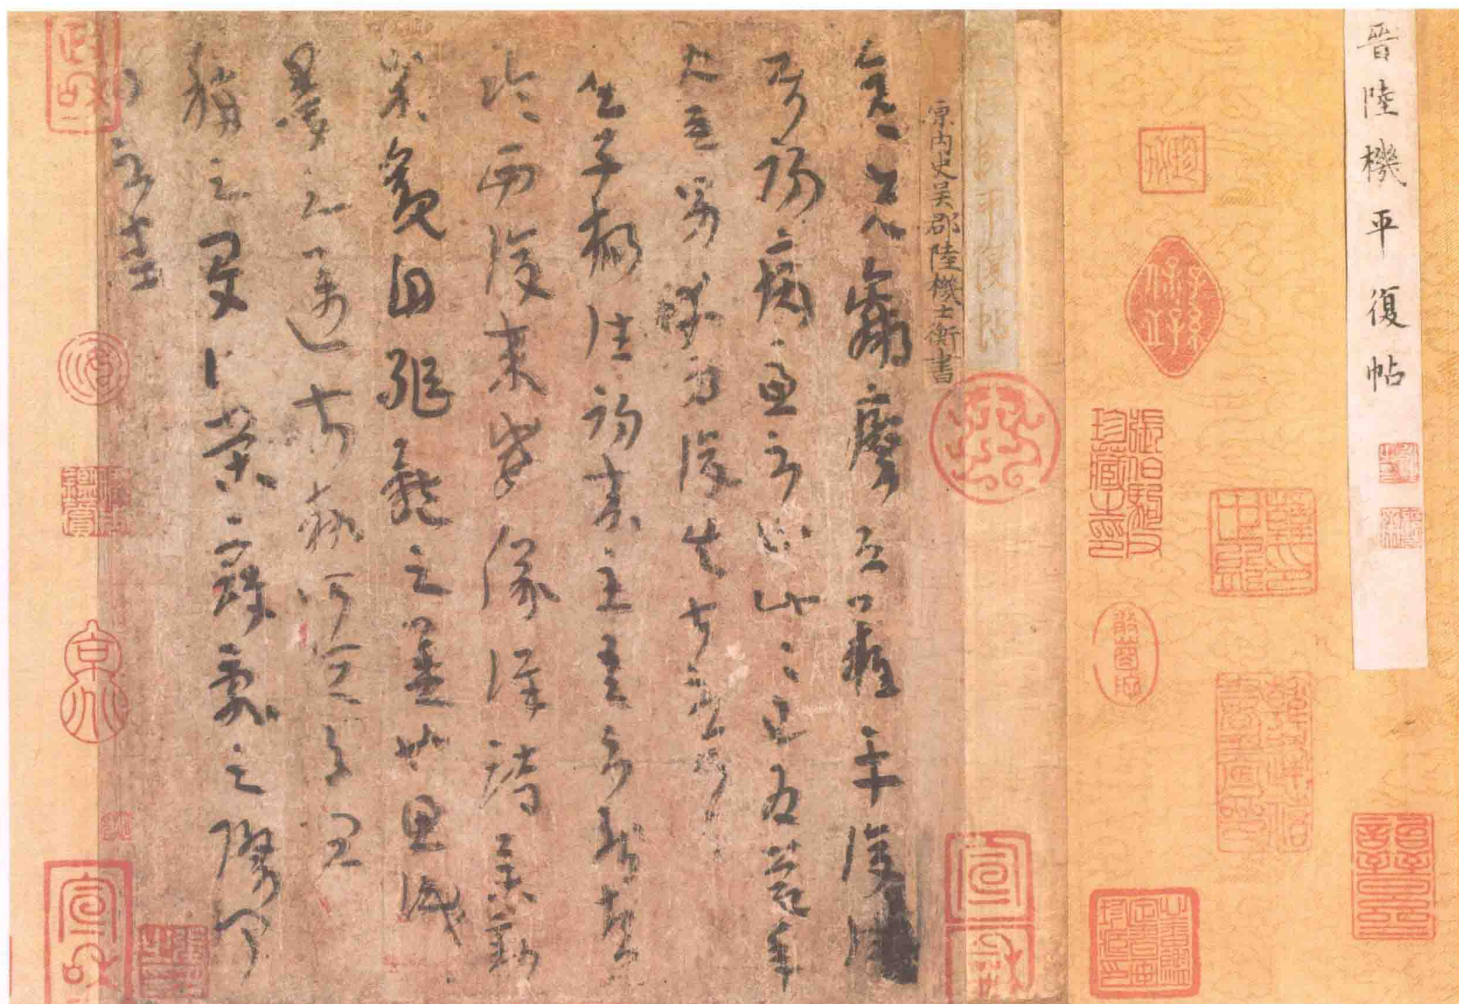 晉陸機平復帖
張伯駒父珍藏之印
陸機平復帖
原内史吳郡陸機士衡書
彦先羸瘵恐難平復往屬
初病慮不止此此已為慶承
使唯男幸為復失前憂耳
吳子楊往初來主吾不能盡
臨西復來威儀詳跱舉動
成觀自軀體之美也思識
量之邁前執所恒有宜
稱之夏伯榮寇亂之際聞
問不悉
宣和
政和